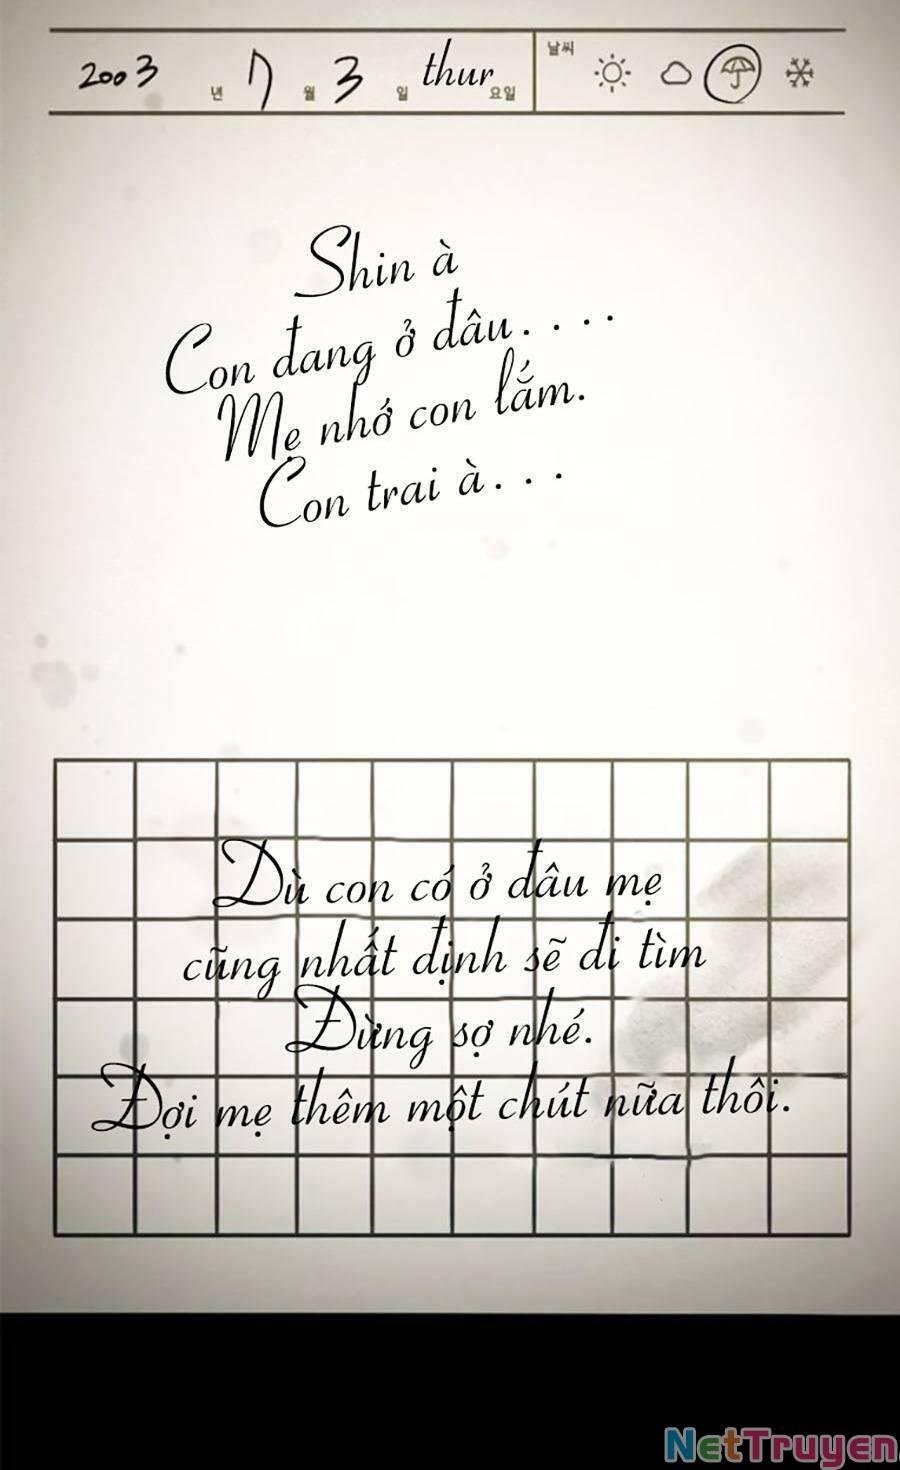 2003 년 7 월 3 일 thur 요일 날씨
Shin à
Con đang ở đâu....
Mẹ nhớ con lắm.
Con trai à...
Dù con có ở đâu mẹ
cũng nhất định sẽ đi tìm
Đừng sợ nhé.
Đợi mẹ thêm một chút nữa thôi.
NetTruyen